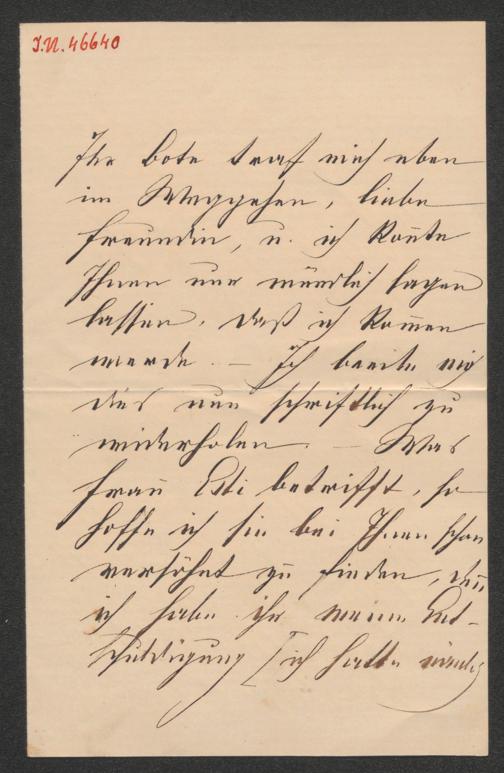 J.N. 46640
Ihr Bote traf mich eben
im Weggehen, liebe
Freundin, u. ich kon̄te
Ihnen nur mündlich sagen
lassen, daß ich kom̄en
werde. – Ich beeile mich
dies nun schriftlich zu
wiederholen. – Was
Frau Etti betrifft, so
hoffe ich sie bei Ihnen schon
versöhnt zu finden, den̄
ich habe ihr meine Ent-
schuldigung [ich hatte nämlich